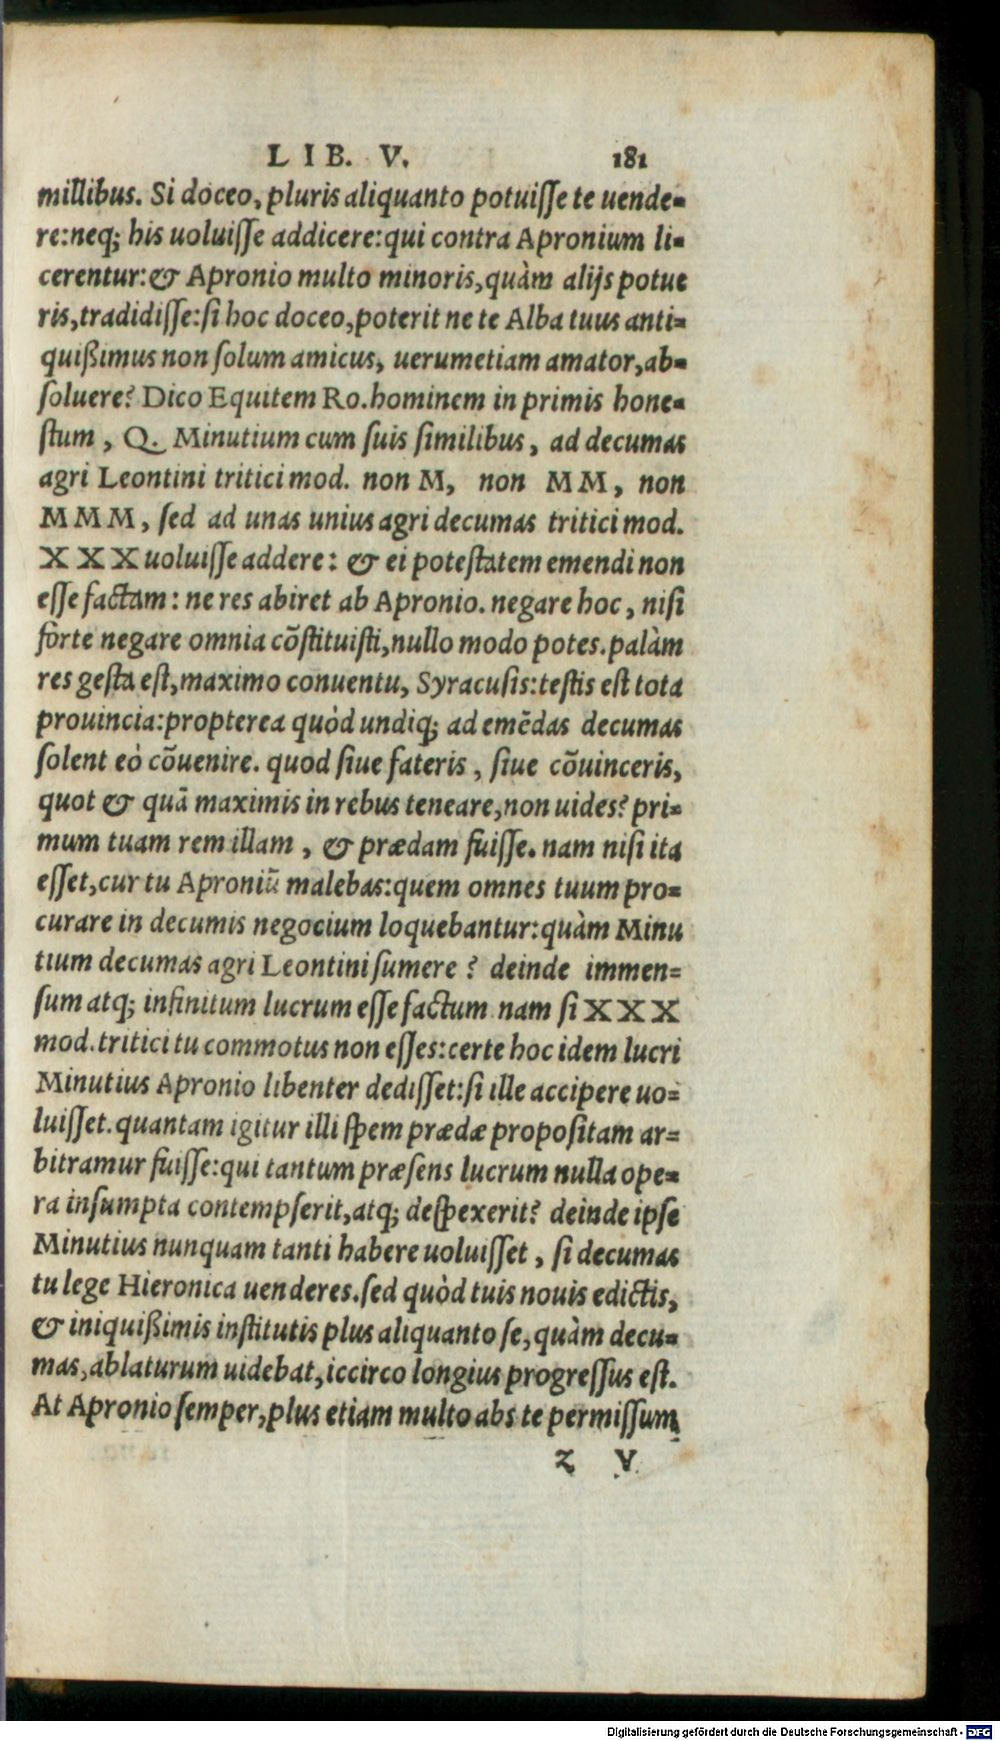 LIB. V. 181
millibus. Si doceo, pluris aliquanto potuisse te uende-
re:neq; his uoluisse addicere:qui contra Apronium li-
cerentur:& Apronio multo minoris,quàm alijs potue
ris,tradidisse:si hoc doceo,poterit ne te Alba tuus anti-
quißimus non solum amicus, uerumetiam amator,ab-
soluere? Dico Equitem Ro.hominem in primis hone-
stum, Q. Minutium cum suis similibus, ad decumas
agri Leontini tritici mod. non M, non MM, non
MMM, sed ad unas unius agri decumas tritici mod.
XXX uoluisse addere: & ei potestatem emendi non
esse factam: ne res abiret ab Apronio. negare hoc, nisi
forte negare omnia cōstituisti,nullo modo potes.palàm
res gesta est,maximo conuentu, Syracusis:testis est tota
prouincia:propterea quòd undiq; ad emēdas decumas
solent eò cōuenire. quod siue fateris, siue cōuinceris,
quot & quā maximis in rebus teneare,non uides? pri-
mum tuam rem illam, & prædam fuisse. nam nisi ita
esset,cur tu Aproniū malebas:quem omnes tuum pro-
curare in decumis negocium loquebantur:quàm Minu
tium decumas agri Leontini sumere? deinde immen-
sum atq; infinitum lucrum esse factum. nam si XXX
mod.tritici tu commotus non esses:certe hoc idem lucri
Minutius Apronio libenter dedisset:si ille accipere uo-
luisset.quantam igitur illi spem prædæ propositam ar-
bitramur fuisse:qui tantum præsens lucrum nulla ope-
ra insumpta contempserit,atq; despexerit? deinde ipse
Minutius nunquam tanti habere uoluisset, si decumas
tu lege Hieronica uenderes.sed quòd tuis nouis edictis,
& iniquißimis institutis plus aliquanto se,quàm decu-
mas,ablaturum uidebat,iccirco longius progressus est.
At Apronio semper,plus etiam multo abs te permissum
Z V
Digitalisierung gefördert durch die Deutsche Forschungsgemeinschaft - DFG